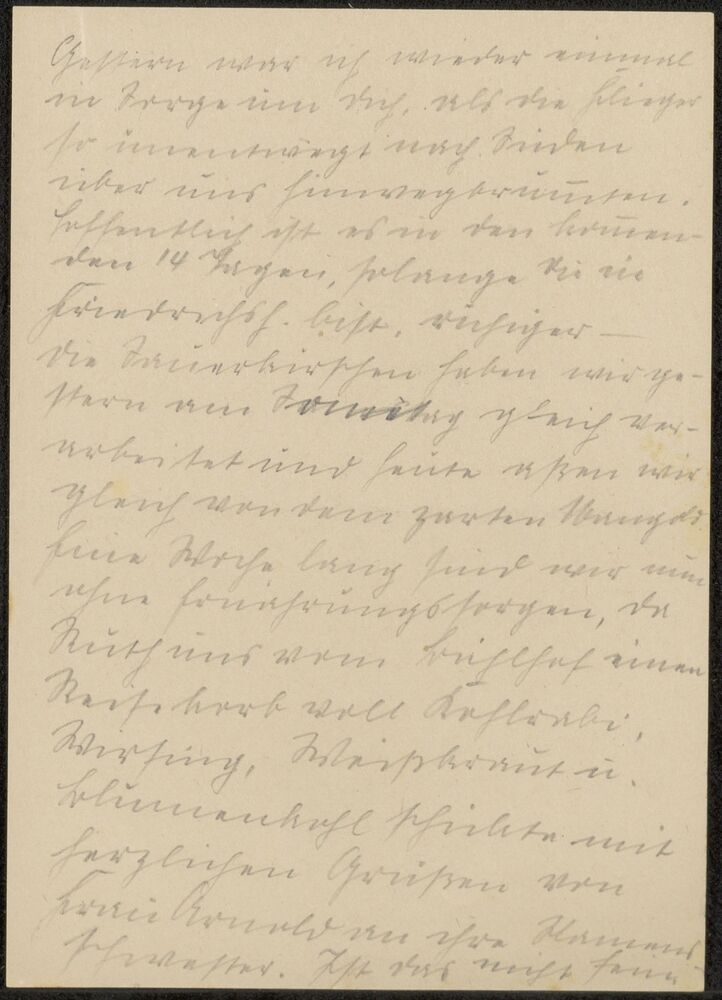 Gestern war ich wieder einmal
in Sorge um dich, als die Flieger
so unentwegt nach Süden
über uns hinwegbrummten.
Hoffentlich ist es in den kommen-
den 14 Tagen, solange Du in
Friedrichsh. bist, ruhiger —
Die Sauerkirschen haben wir ge-
stern am Sonntag gleich ver-
arbeitet und heute assen wir
gleich von dem zarten Mangold.
Eine Woche lang sind wir nun
ohne Ernährungssorgen, da
Ruth uns vom Bühlhof einen
Reisekorb voll Kohlrabi,
Wirsing, Weißkraut u.
Blumenkohl schickte mit
herzlichen Grüßen von
Frau Arnold an ihre Namens-
schwester. Ist das nicht fein